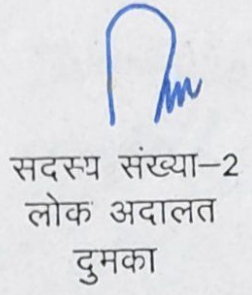 सदस्य संख्या–2
लोक अदालत
दुमका